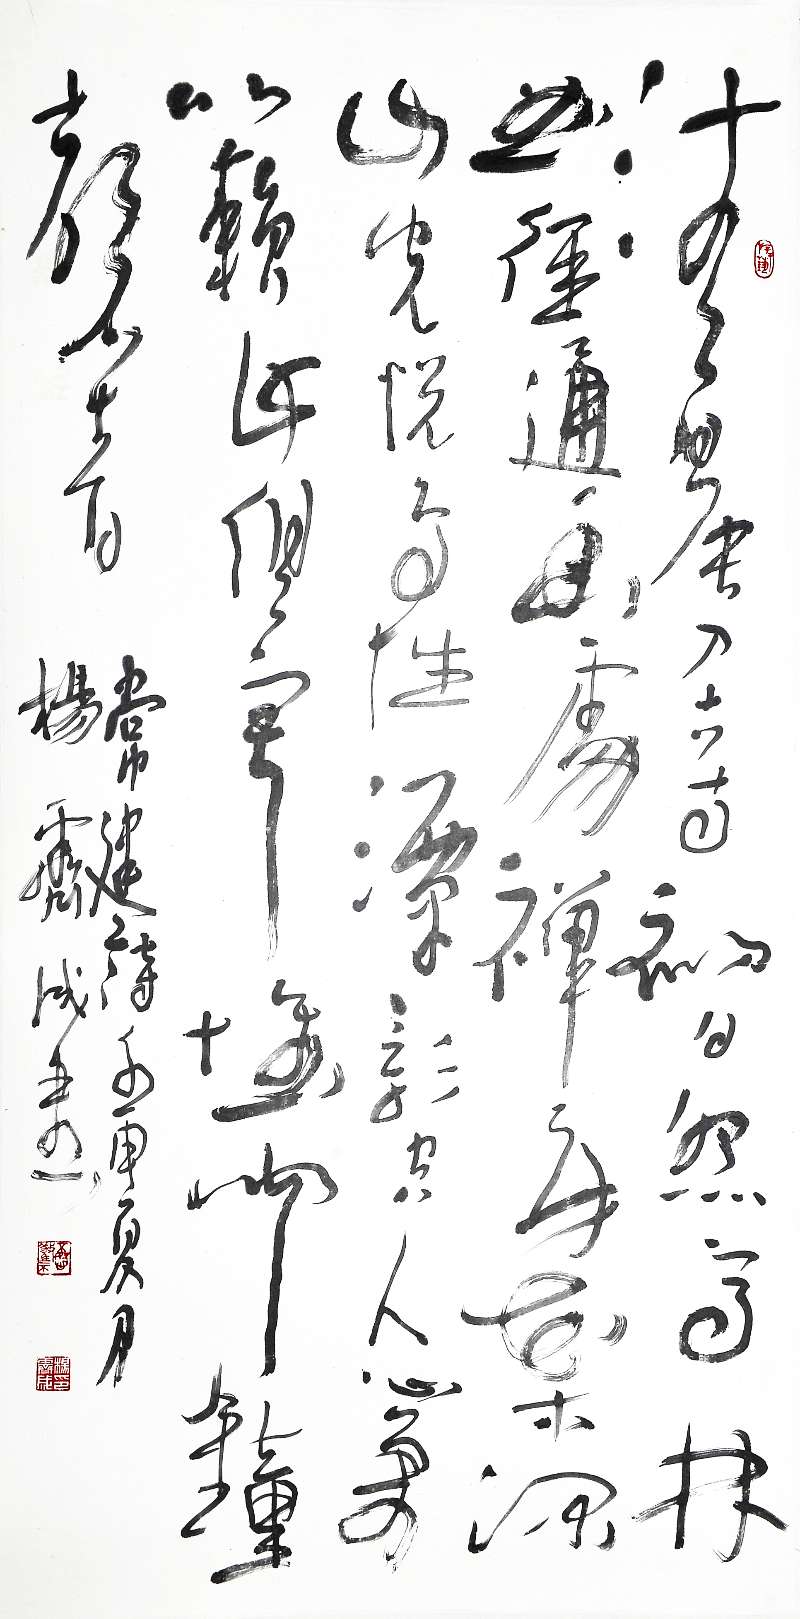 清晨入古寺初日照高林
曲徑通幽處禪房花木深
山光悅鳥性潭影空人心萬
籟此俱寂惟聞鐘
磬音
常建詩 夏月
楊霽成